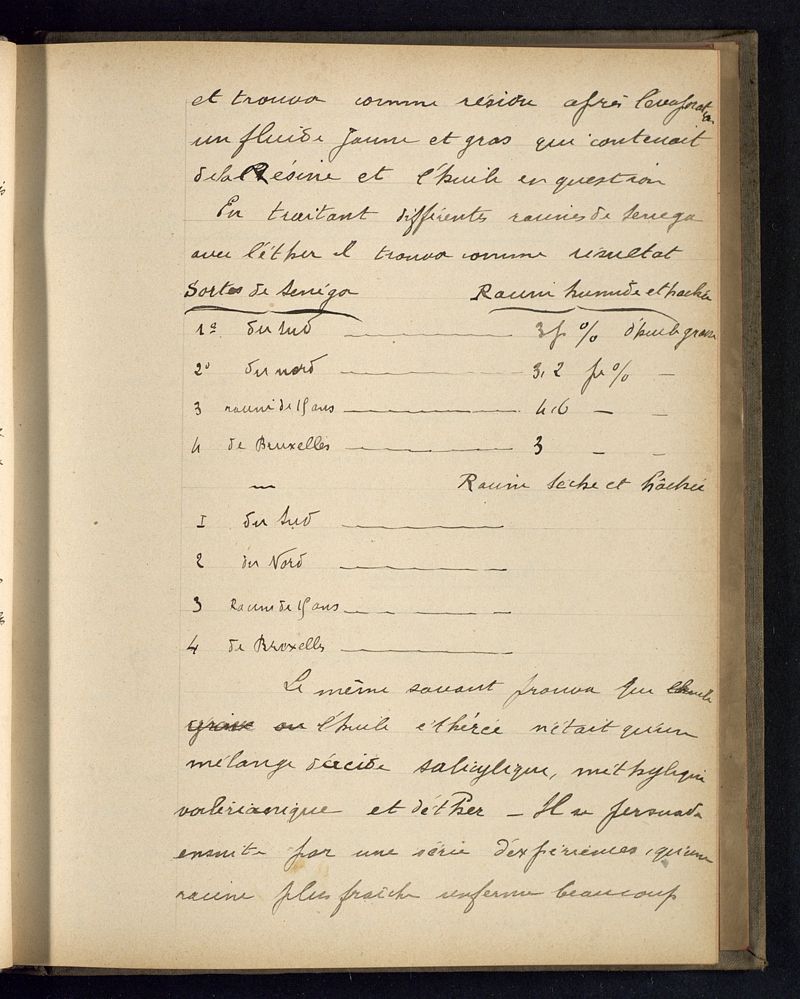 et trouva comme résidu après l'évaporation
un fluide jaune et gras qui contenait
de la Résine et l'huile en question
En traitant différentes racines de Senega
avec l'éther il trouva comme résultat
Sortes de Senéga Racine humide et hachée
1º du Sud 3 p % d'huile grasse
2º du nord 3,2 pr % —
3 racine de 15 ans 4,6 — —
4 de Bruxelles 3 — —
— Racine sèche et hâchée
I du Sud
2 du Nord
3 Racine de 15 ans
4 de Bruxelles
Le même savant prouva que l'huile
grasse ou l'huile ethérée n'était qu'un
mélange d'acide salicylique, méthylique
valérianique et d'éther — Il se persuada
ensuite par une série d'expériences, qu'une
racine plus fraîche renferme beaucoup